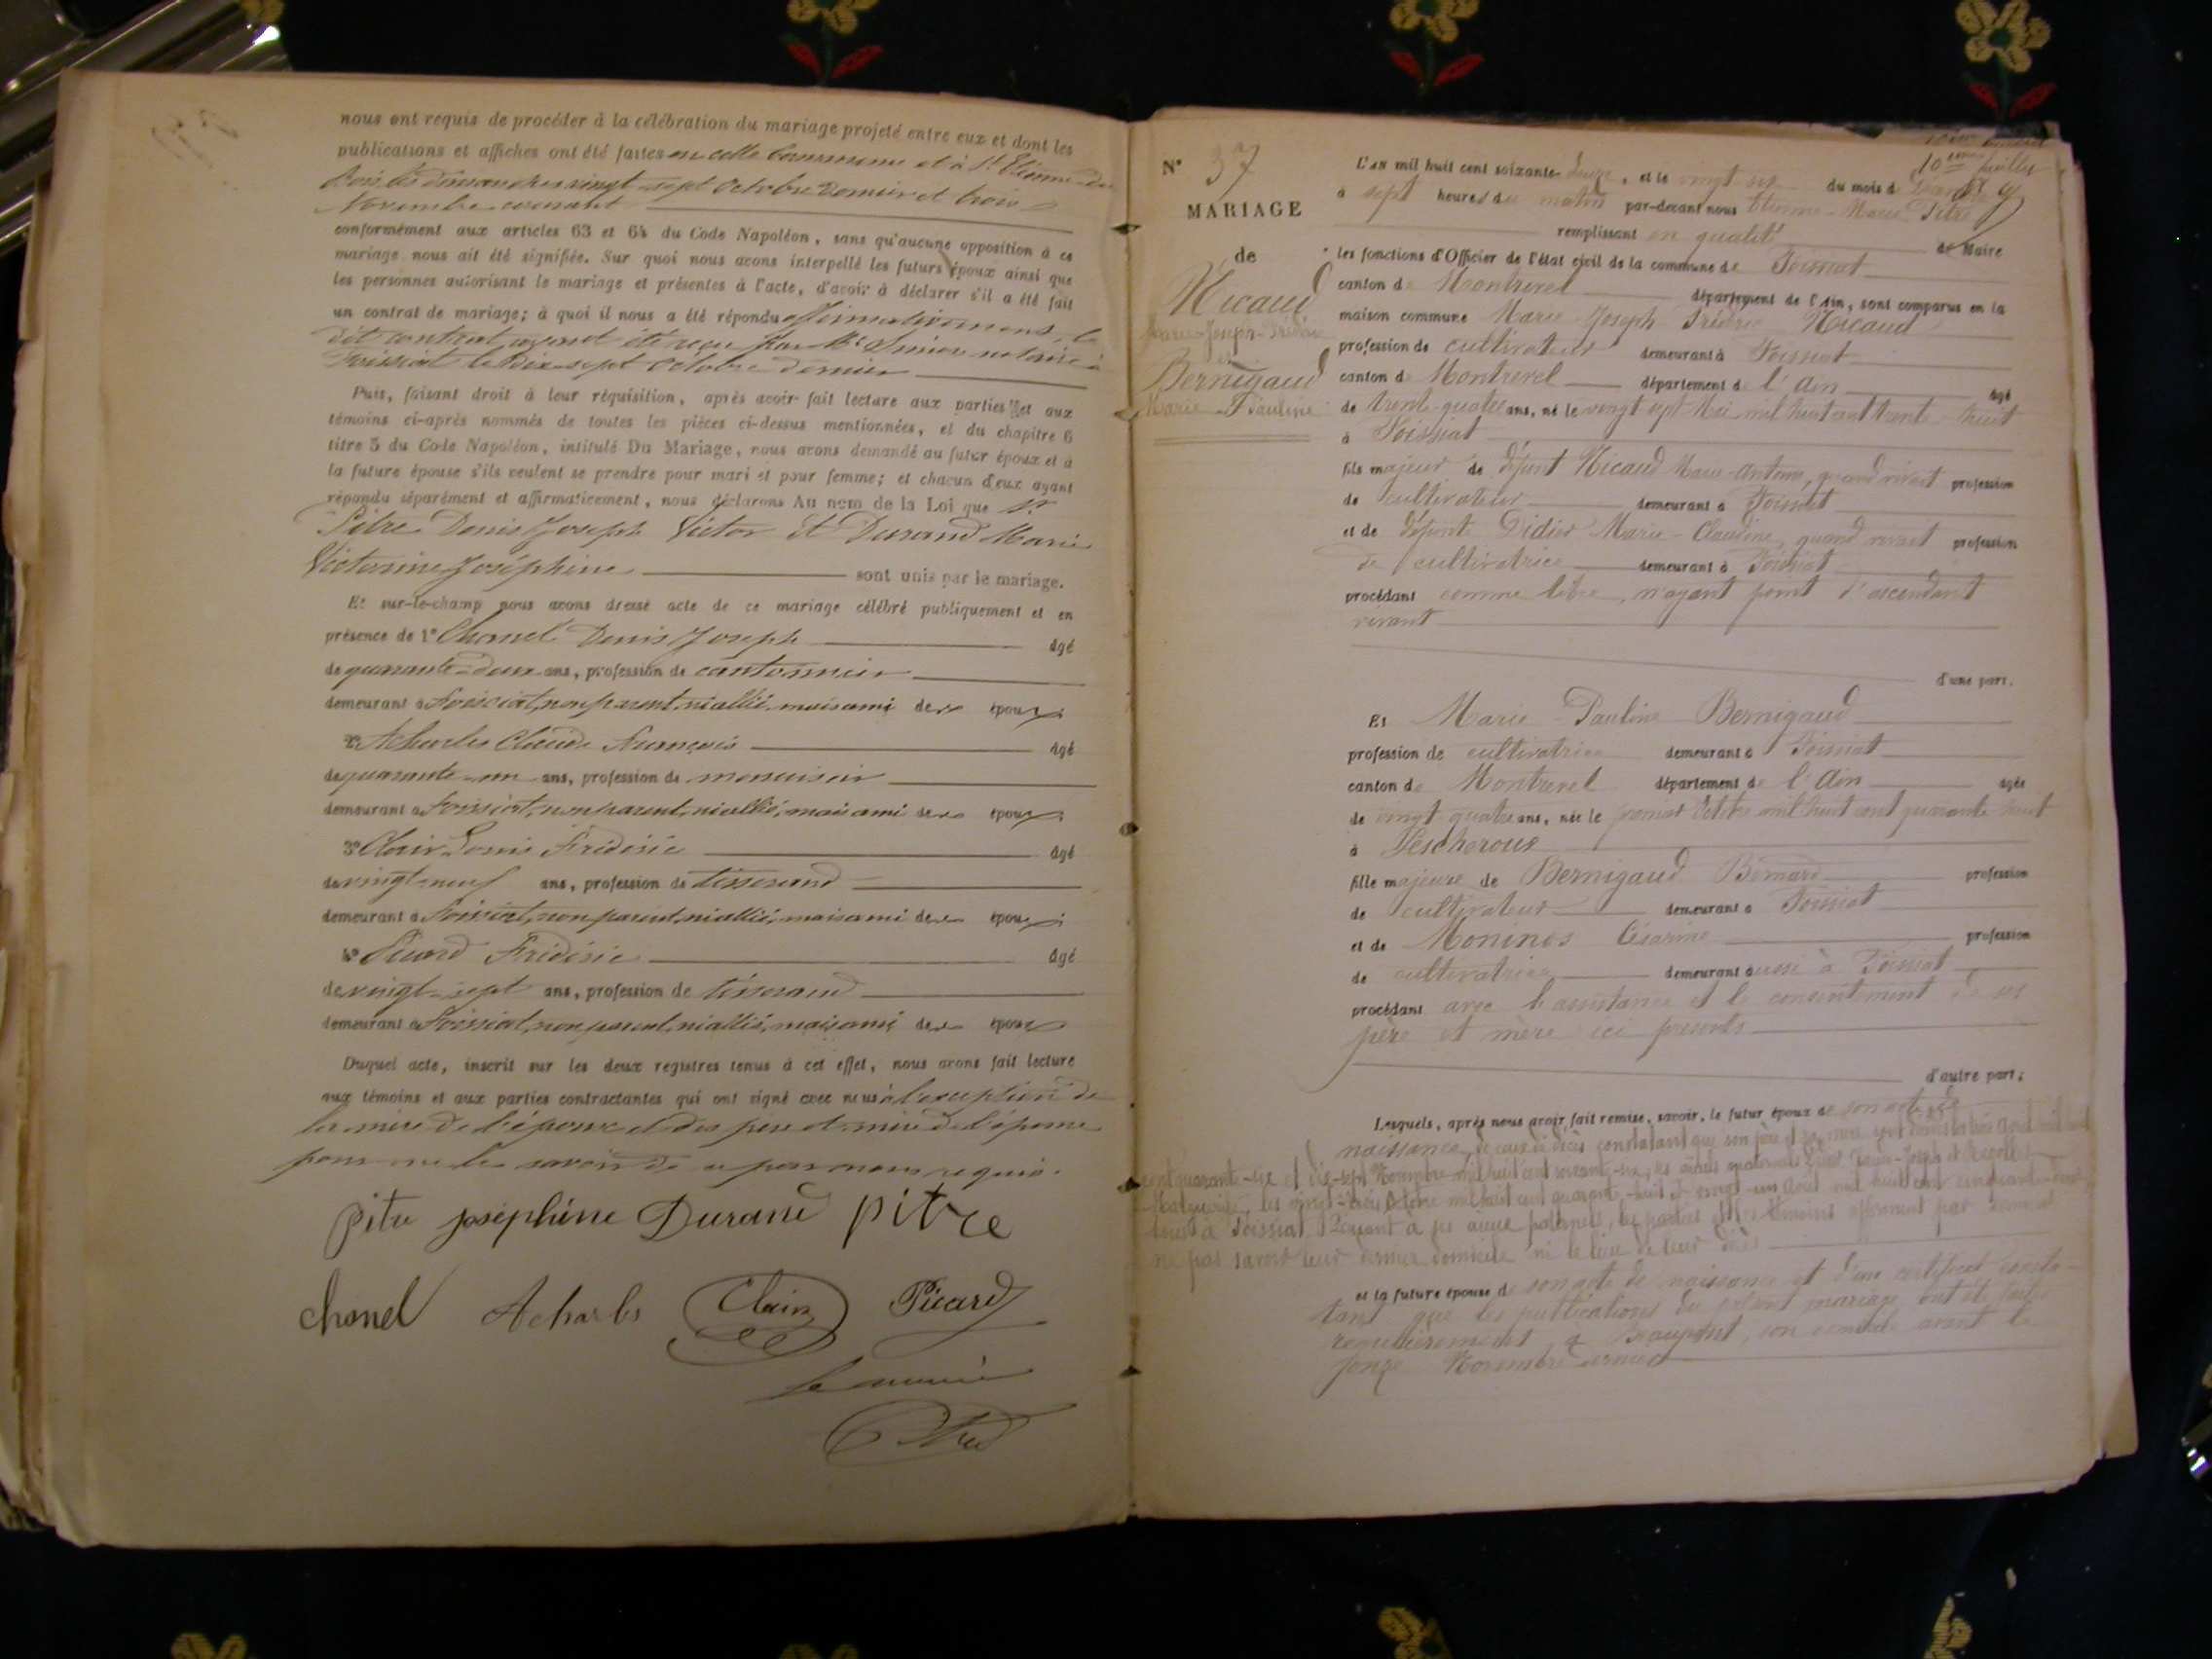 nous ont requis de procéder à la célébration du mariage projeté entre eux et dont les
publications et affiches ont été faites en cette Commune et à St Etienne-du
Bois les dimanches vingt-sept Octobre dernier et trois
Novembre courant
conformément aux articles 63 et 64 du Code Napoléon, sans qu'aucune opposition à ce
mariage nous ait été signifiée. Sur quoi nous avons interpellé les futurs époux ainsi que
les personnes autorisant le mariage et présentes à l'acte, d'avoir à déclarer s'il a été fait
un contrat de mariage; à quoi il nous a été répondu affirmativement, le
dit contrat ayant été reçu par Me notaire à
Foissiat le dix-sept Octobre dernier
Puis, faisant droit à leur réquisition, après avoir fait lecture aux parties et aux
témoins ci-après nommés de toutes les pièces ci-dessus mentionnées, et du chapitre 6
titre 5 du Code Napoléon, intitulé Du Mariage, nous avons demandé au futur époux et à
la future épouse s'ils veulent se prendre pour mari et pour femme; et chacun d'eux ayant
répondu séparément et affirmativement, nous déclarons Au nom de la Loi que
Pitre Denis Joseph Victor Et Durand Marie
Victorine Joséphine sont unis par le mariage.
Et sur-le-champ nous avons dressé acte de ce mariage célébré publiquement et en
présence de 1° Chanel Denis Joseph âgé
de quarante-deux ans, profession de cantonnier
demeurant à Foissiat, non parent, ni allié, mais ami des époux;
2° Acharles Claude François âgé
de quarante-un ans, profession de menuisier
demeurant à Foissiat, non parent, ni allié, mais ami des époux;
3° Clair Louis Frédéric âgé
de vingt-neuf ans, profession de tisserand
demeurant à Foissiat, non parent, ni allié, mais ami des époux;
4° Picard Frédéric âgé
de vingt-sept ans, profession de tisserand
demeurant à Foissiat, non parent, ni allié, mais ami des époux
Duquel acte, inscrit sur les deux registres tenus à cet effet, nous avons fait lecture
aux témoins et aux parties contractantes qui ont signé avec nous à l'exception de
la mère de l'époux et des père et mère de l'épouse
pour ne le savoir de ce par nous requis.
pitre joséphine Durand pitre
chanel Acharles Clair Picard
le maire
Pitre
N° 37
MARIAGE
de
Nicaud
Marie-Joseph-Frédéric
et
Bernigaud
Marie-Pauline
10ème Juillet
L'AN mil huit cent soixante-douze, et le vingt six du mois d
à sept heures du matin par-devant nous Etienne-Marie Pitre
remplissant en qualité de Maire
les fonctions d'Officier de l'état civil de la commune de Foissiat
canton de Montrevel département de l'Ain, sont comparus en la
maison commune Marie Joseph Frédéric Nicaud
profession de cultivateur demeurant à Foissiat
canton de Montrevel département de l'Ain âgé
de trente-quatre ans, né le vingt sept Mai mil huit cent trente-huit
à Foissiat
fils majeur de défunt Nicaud Marie-Antoine, quand vivait profession
de cultivateur demeurant à Foissiat
et de défunte Didier Marie-Claudine, quand vivait profession
de cultivatrice demeurant à Foissiat
procédant comme libre, n'ayant point d'ascendant
vivant
d'une part.
Et Marie-Pauline Bernigaud
profession de cultivatrice demeurant à Foissiat
canton de Montrevel département de l'Ain âgée
de vingt quatre ans, née le premier Octobre mil huit cent quarante huit
à Lescheroux
fille majeure de Bernigaud Bernard profession
de cultivateur demeurant à Foissiat
et de Moninos Césarine profession
de cultivatrice demeurant aussi à Foissiat
procédant avec l'assistance et le consentement de ses
père et mère ici présents
d'autre part;
Lesquels, après nous avoir fait remise, savoir, le futur époux de son acte de
naissance, de ceux de décès constatant que son père et sa mère sont
cent quarante-six et dix-sept Novembre mil huit cent soixante-six,
les vingt-trois Octobre mil huit cent quarante-huit et vingt-un Août mil huit cent cinquante
tous à Foissiat. Quant à ses aïeux paternels, les parties et les témoins affirment par serment
ne pas savoir leur dernier domicile ni le lieu de leur décès
et la future épouse de son acte de naissance et d'un certificat consta-
tant que les publications du présent mariage ont été faites
régulièrement à Beaupont, son domicile avant le
onze Novembre dernier